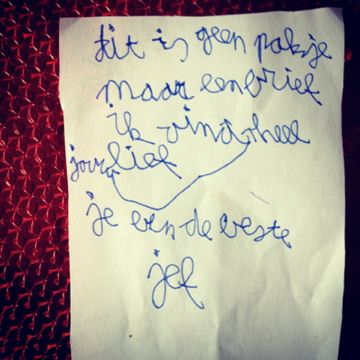 dit is geen pakje
maar een brief
ik vind heel
jou lief
je ben de beste
jef